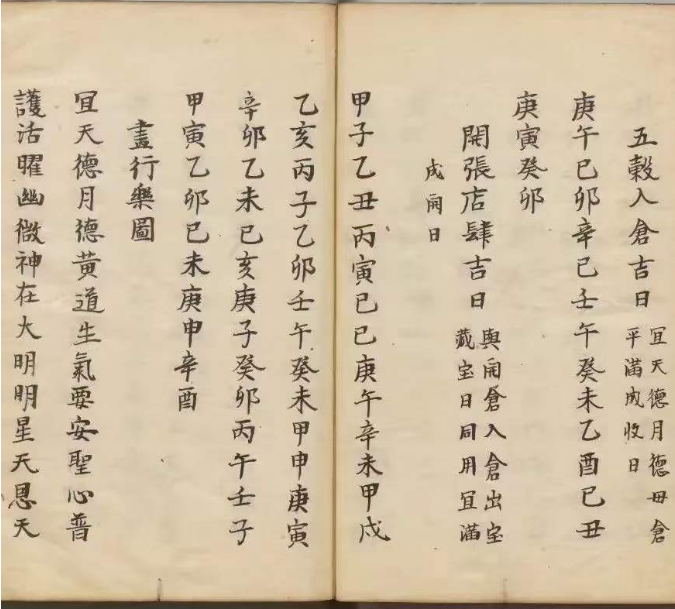 五穀入倉吉日 宜天德月德母倉
平滿成收日
庚午己卯辛巳壬午癸未乙酉己丑
庚寅癸卯
開張店肆吉日 與開倉入倉出宝
藏宝日同用宜滿
成開日
甲子乙丑丙寅己巳庚午辛未甲戌
乙亥丙子乙卯壬午癸未甲申庚寅
辛卯乙未己亥庚子癸卯丙午壬子
甲寅乙卯己未庚申辛酉
畫行樂圖
宜天德月德黃道生氣要安聖心普
護活曜幽微神在大明明星天恩天